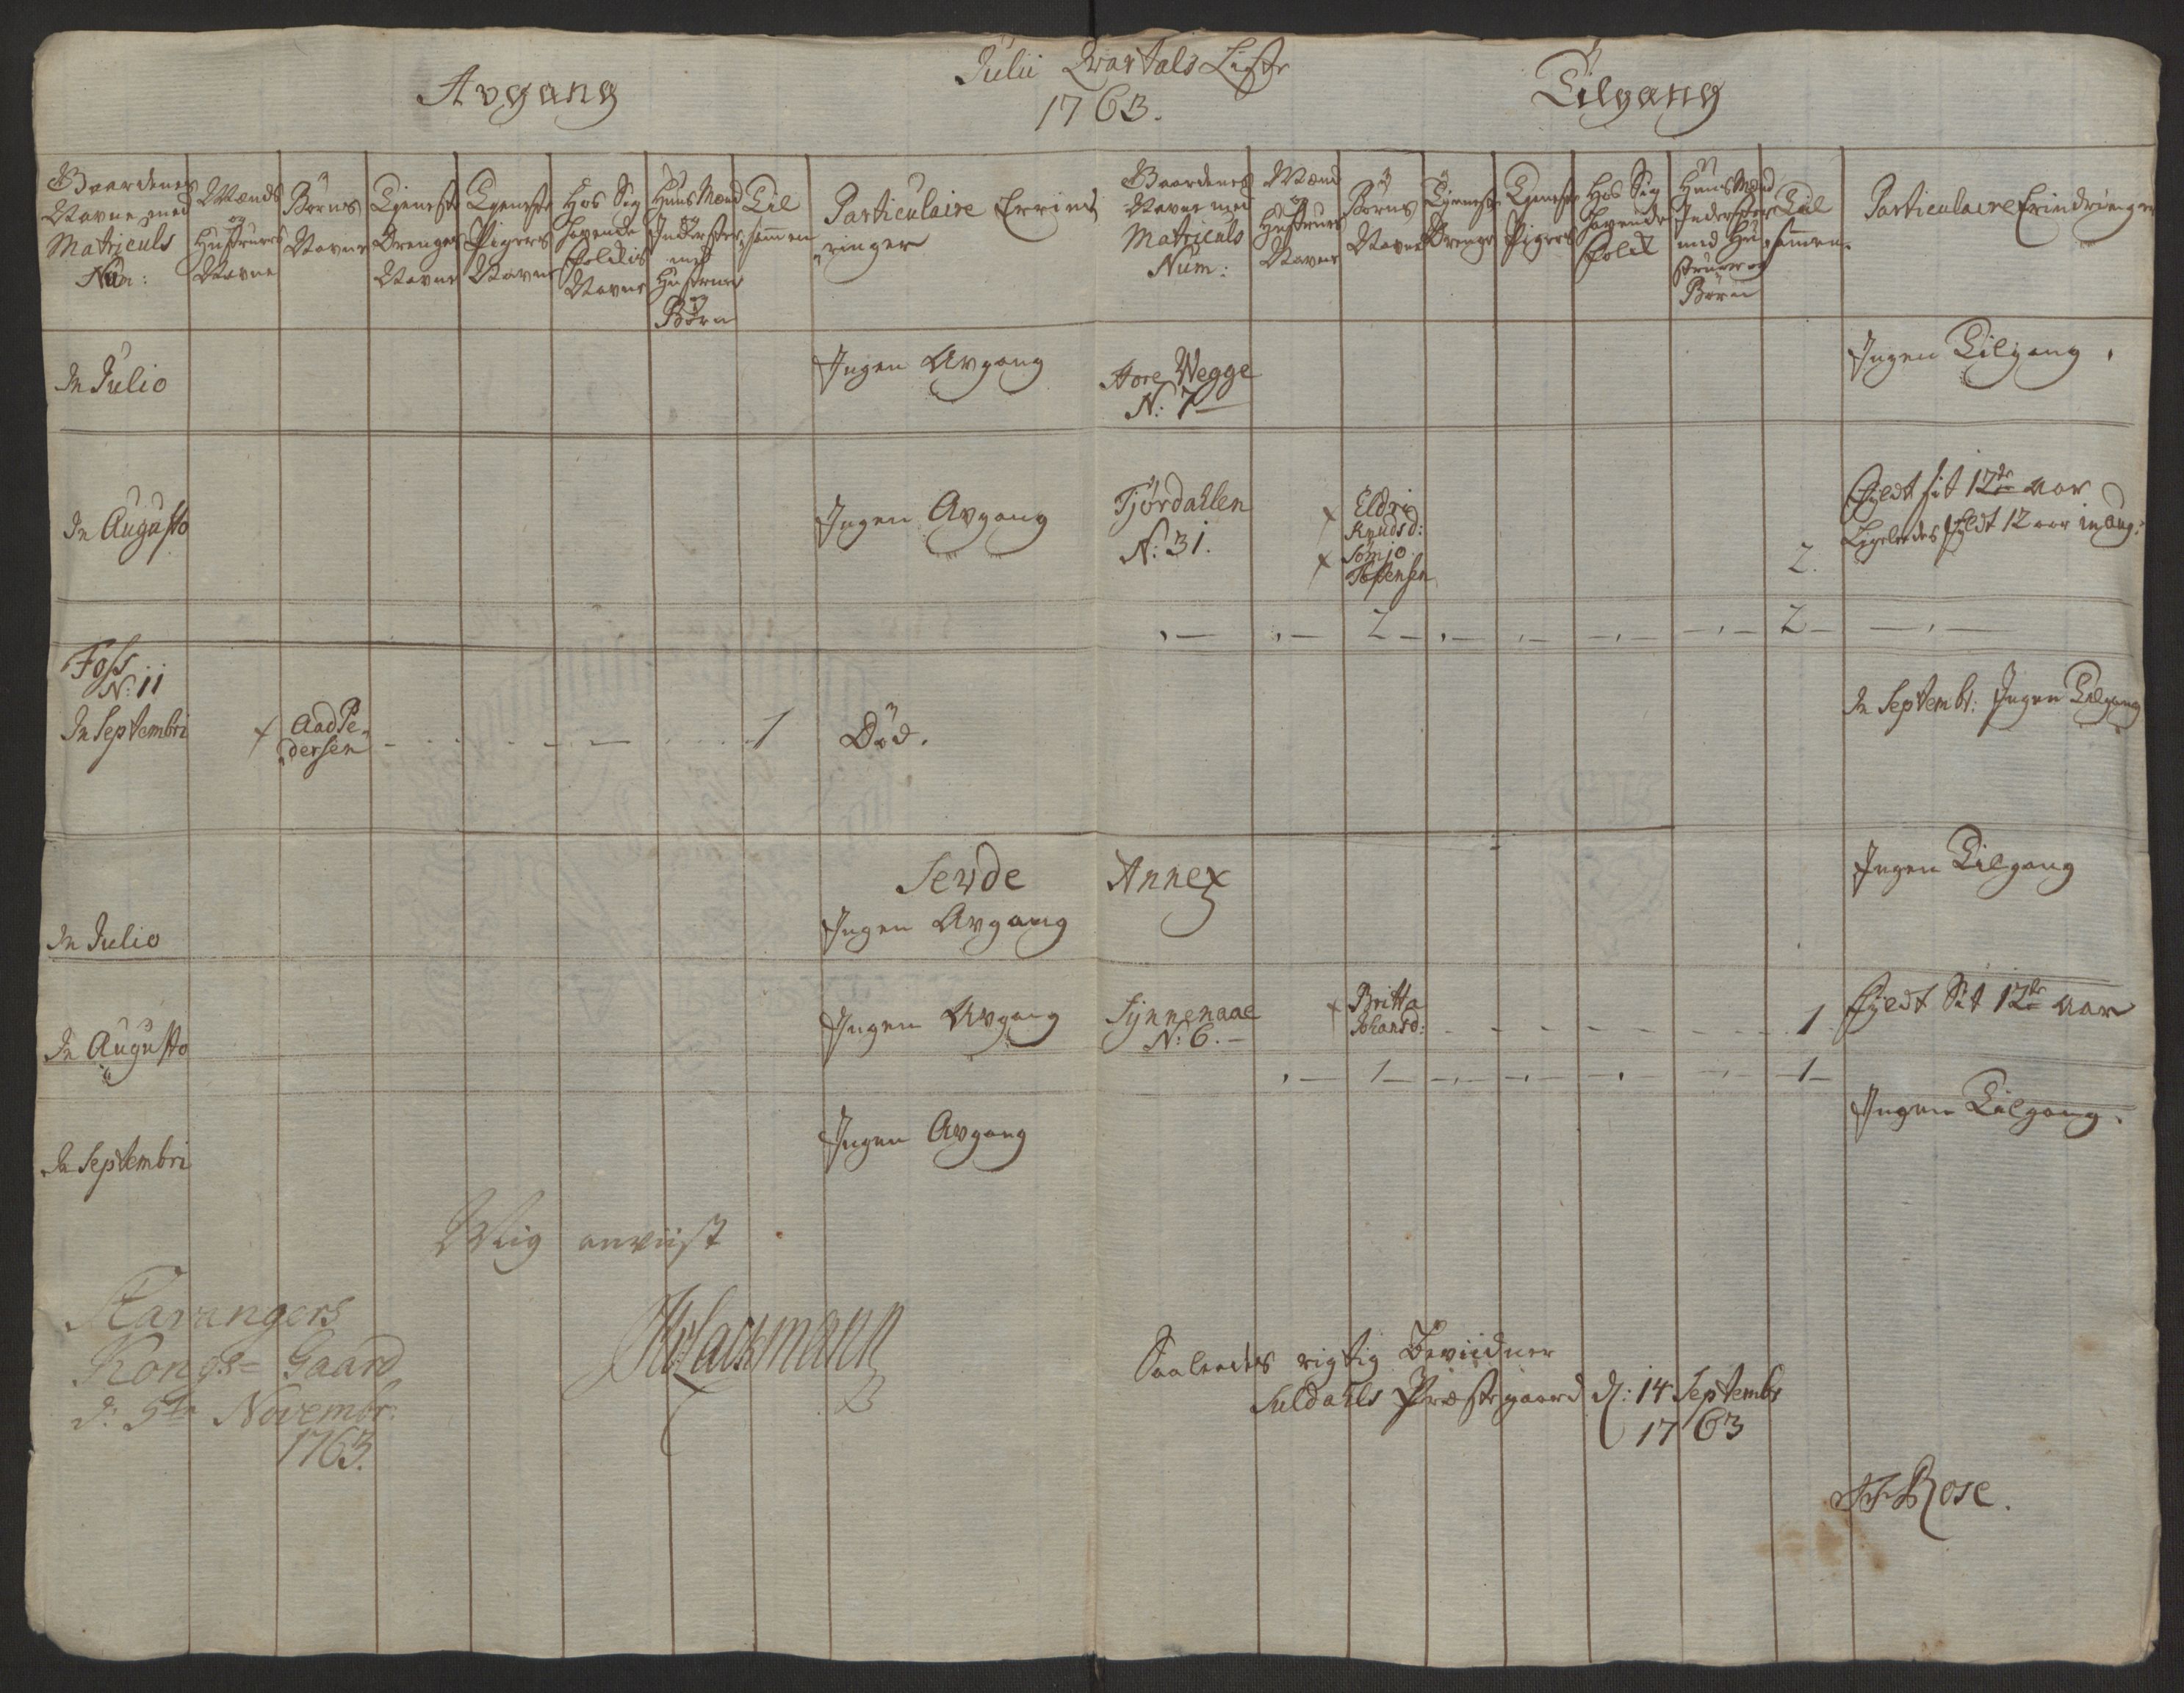 Julii Qvartals Liste
1763.
Avgang
Tilgang
Gaardenes
Navne med
Matriculs
Num:
Mænds
og
Hustruers
Navne
Börns
Navne
Tieneste
Drenges
Navne
Tieneste
Pigers
Navne
Hos Sig
havende
Folckis
Navne
Huus Mænd
og
Inderster
med
Hustruer
og
Börn
Til
sammen
Particulaire Errind
ringer
Gaardenes
Navne med
Matriculs
Num:
Mænd
og
Hustruers
Navne
Börns
Navne
Tieneste
Drenge
Tieneste
Piger
Hos Sig
havende
Folck
Huus Mænd
Inderster
med Hu-
struer og
Börn
Til
sammen
Particulaire Erindringer
In Julio
Ingen Avgang
Hore Wegge
N: 7
Ingen Tilgang.
In Augusto
Ingen Avgang
Tjørdahlen
N: 31.
x Eldri
Knudsd:
x
Tostensen
2.
Fyldt sit 12te aar
Ligeledes fyldt 12 aar in Aug:
2 2
Foss
N: 11
In Septembri
x Aad Pe-
dersen
1
Död.
In Septembr: Ingen Tilgang
Sewde Annex
In Julio
Ingen Avgang
Ingen Tilgang
In Augusto
Ingen Avgang
Synnenaae
N: 6.
x Britta
Johansd:
1
Fyldt Sit 12te aar
1 1
In Septembri
Ingen Avgang
Ingen Tilgang.
Mig anviist
Stavangers
Kongs- Gaard
d: 5te Novembr:
1763.
Saaledes rigtig Beviidner
Suldahls Præstegaard d: 14 Septembr
1763
Rose.